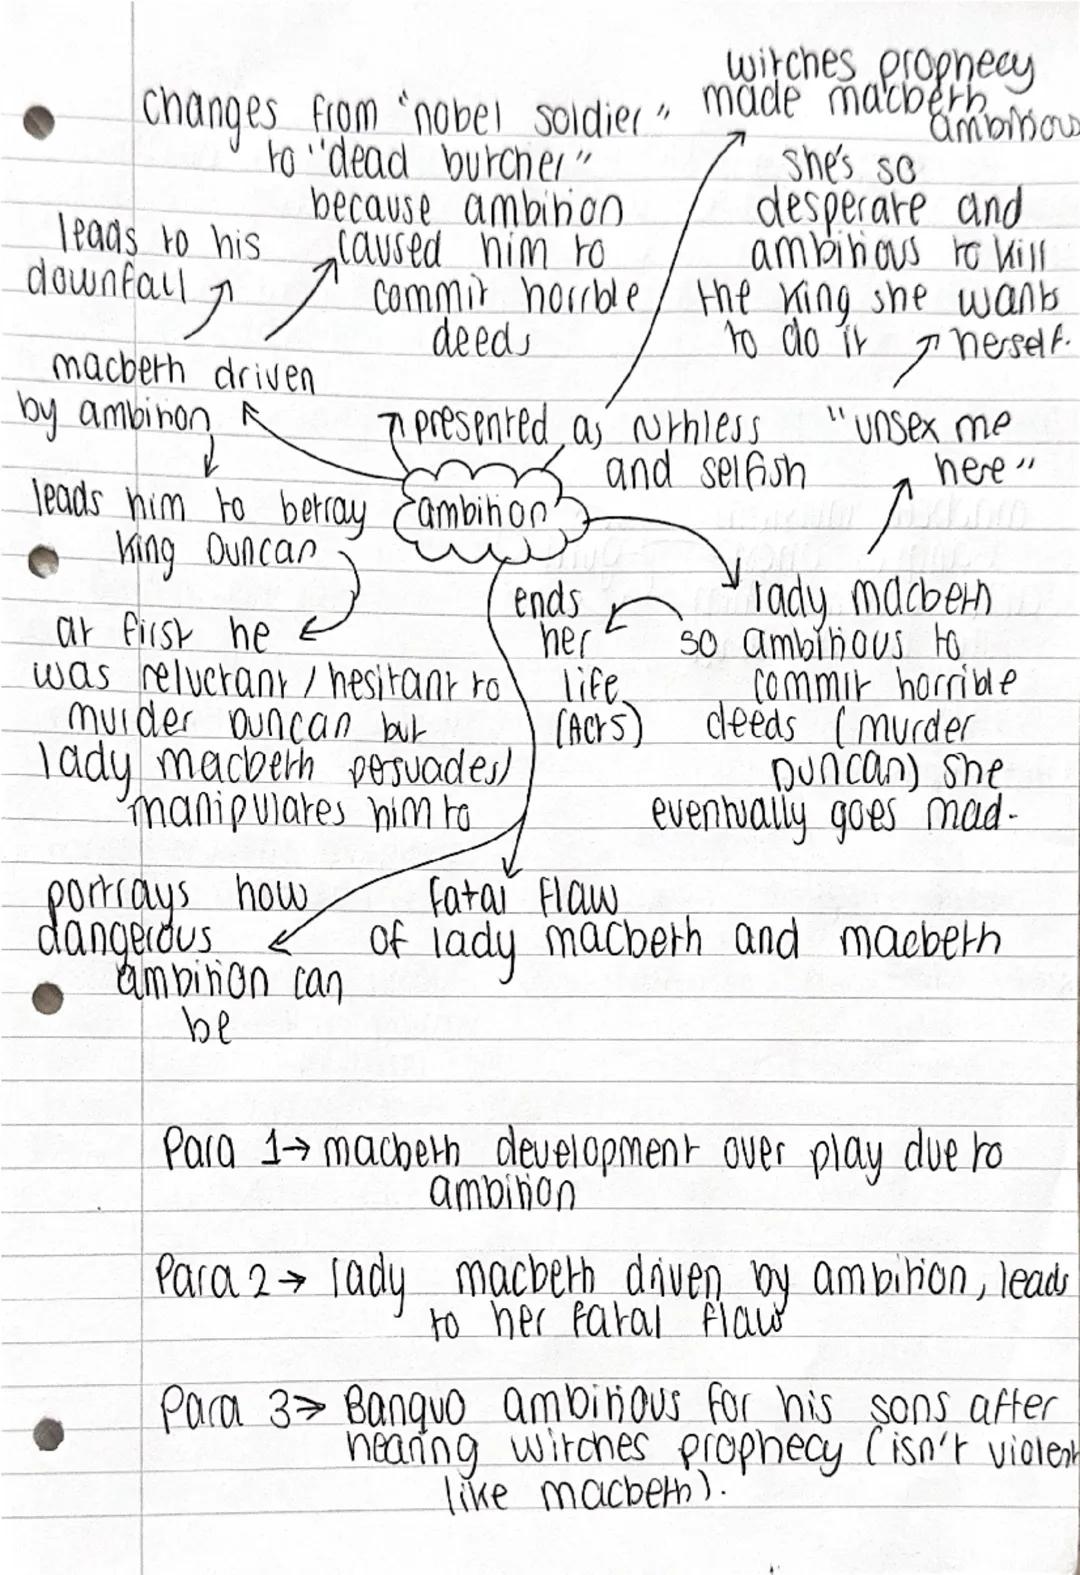 witches prophecy
made macbeth
ambitious
changes from "nobel soldier"
to "dead butcher"
because ambition
caused him to
commit horrble
deeds
she's so
desperate and
ambitious to kill
the king she wants
to do it herself.
leads to his
downfall
macbeth driven
by ambition
presented as ruthless
and selfish
"unsex me
here"
leads him to betray
king Duncan
ambition
at first he
was reluctant / hesitant to
murder Duncan but
lady macbeth persuades/
manipulates him to
ends
her
life
(Act 5)
lady macbeth
so ambitious to
commit horrible
deeds (murder
Duncan) she
eventually goes mad.
portrays how
dangerous
ambition can
be
fatal flaw
of lady macbeth and macbeth
Para 1→ macbeth development over play due to
ambition
Para 2→ lady macbeth driven by ambition, leads
to her fatal flaw
Para 3→ Banquo ambitious for his sons after
hearing witches prophecy (isn't violent
like macbeth).